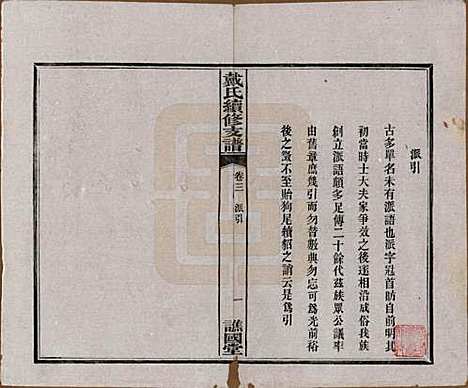 派引
古多單名未有派語也派字冠首昉自前明其
初當時士大夫家爭效之後遂相沿成俗我族
創立派語頗多足傳二十餘代茲族眾公議率
由舊章庶幾引而勿替數典勿忘可為光前裕
後之蛩不至貽狗尾續貂之誚云是為引
戴氏續修支譜
卷三
派引
一
譙國堂